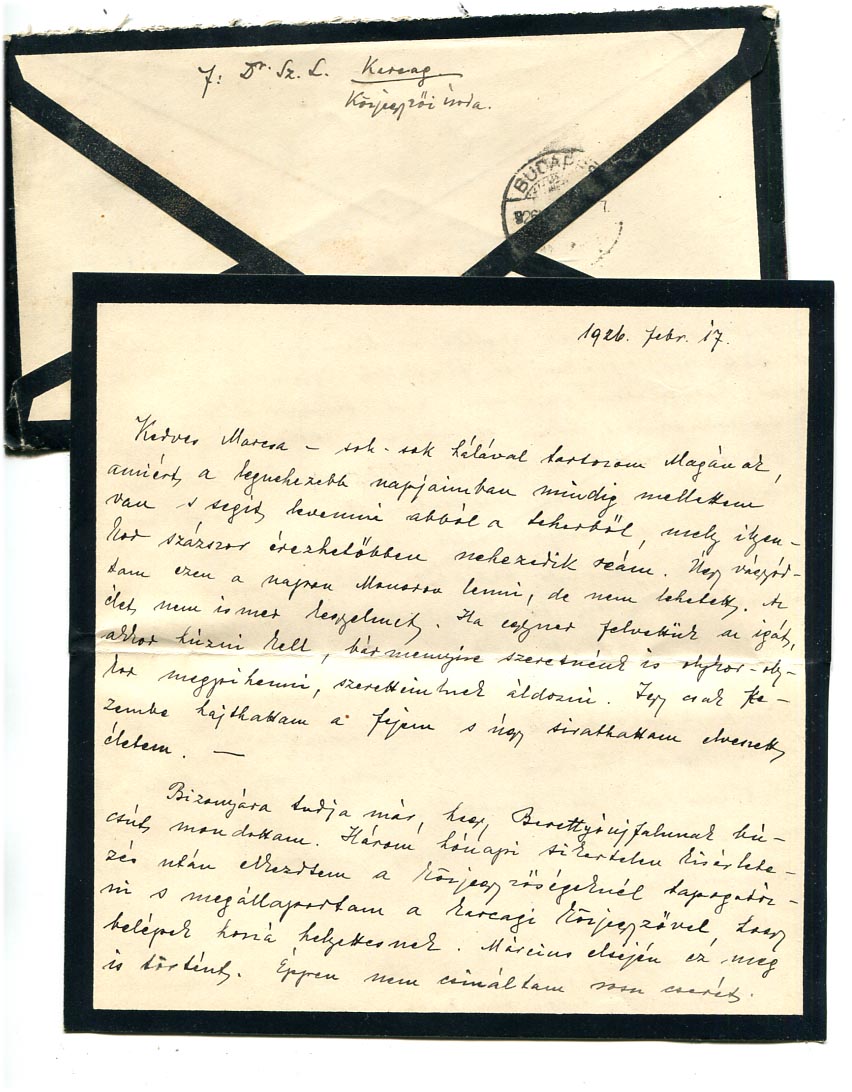 F: Dr. Sz. L. Karcag
Közjegyzői iroda.
BUDAPES
1926. febr. 17.
Kedves Marcsa – sok-sok hálával tartozom Magának,
amiért a legnehezebb napjaimban mindig mellettem
van s segit levenni abból a teherből, mely ilyen-
kor százszor érezhetőbben nehezedik reám. Úgy vágyód-
tam ezen a napon Monoron lenni, de nem lehetett. Az
élet nem ismer kegyelmet. Ha egyszer felvettük az igát,
akkor húzni kell, bármennyire szeretnénk is olykor-oly-
kor megpihenni, szeretteinknek áldozni. Igy csak ke-
zembe hajthattam a fejem s úgy sirathattam elveszett
életem. —
Bizonyára tudja már, hogy Berettyóujfalunak bú-
csút mondottam. Három hónapi sikertelen kisérlete-
zés után elkezdtem a közjegyzőségeknél tapogatóz-
ni s megállapodtam a karcagi közjegyzővel, hogy
belépek hozzá helyettesnek. Március elsején ez meg
is történt. Éppen nem csináltam rossz cserét.